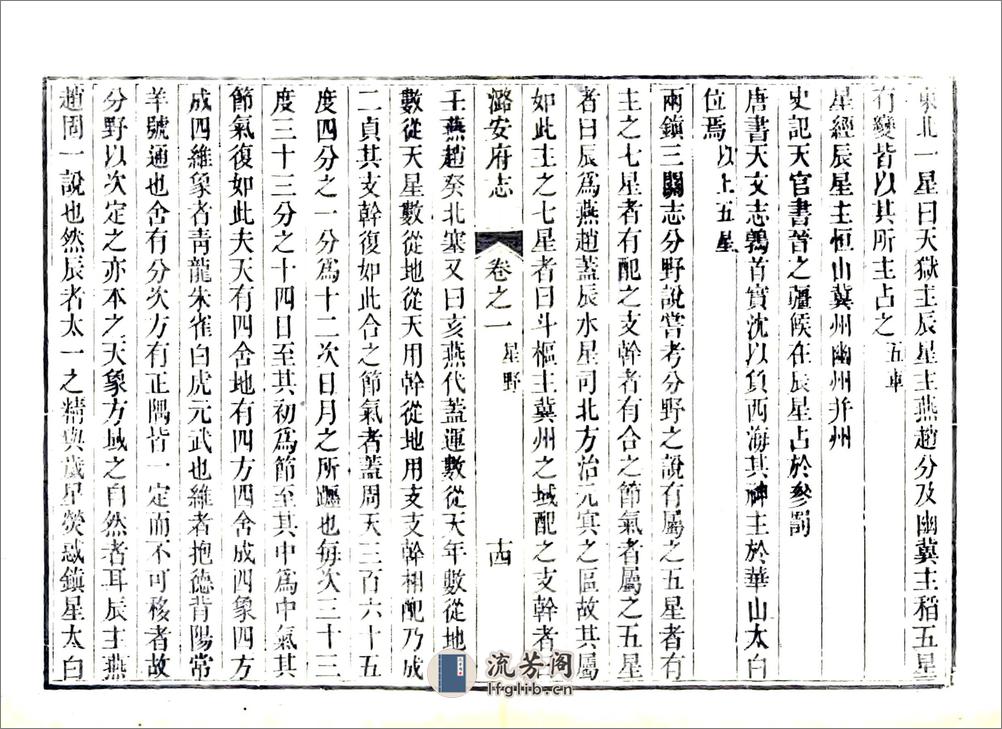 東北一星曰天獄主辰星主燕趙分及幽冀主稻五星
有變皆以其所主占之五車
星經辰星主恒山冀州幽州并州
史記天官書晉之疆候在辰星占於參罰
唐書天文志鶉首實沈以負西海其神主於華山太白
位焉以上五星
兩鎮三關志分野說嘗考分野之說有屬之五星者有
主之七星者有配之支幹者有合之節氣者屬之五星
者曰辰爲燕趙蓋辰水星司北方治元寘之區故其屬
如此主之七星者曰斗樞主冀州之域配之支幹者曰
潞安府志 卷之一 星野 十四
壬燕趙癸北塞又曰亥燕代蓋運數從天年數從地日
數從天星數從地從天用幹從地用支支幹相配乃成
二貞其支幹復如此合之節氣者蓋周天三百六十五
度四分之一分爲十二次日月之所躔也每次三十三
度三十三分之十四日至其初爲節至其中爲中氣其
節氣復如此夫天有四舍地有四方四舍成四象四方
成四維象者靑龍朱雀白虎元武也維者抱德背陽常
羊號通也舍有分次方有正隅皆一定而不可移者故
分野以次定之亦本之天象方域之自然者耳辰主燕
趙固一說也然辰者太一之精典歲星熒惑鎭星太白
流芳阁
lfglib.cn